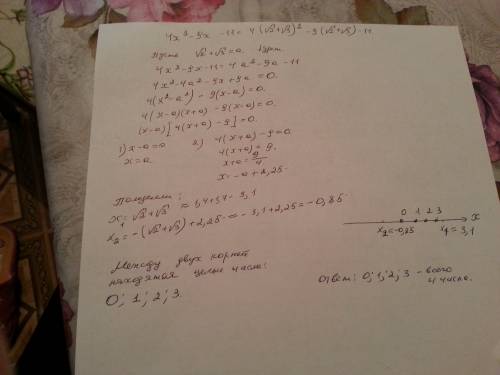 4x² - 9x - 11 = 4(√2+√3)² - 9(√2+√3) - 11
Пусть √2+√3 = a.
4x² - 9x - 11 = 4a² - 9a - 11
4x² - 4a² - 9x + 9a = 0.
4(x² - a²) - 9(x-a) = 0.
4(x-a)(x+a) - 9(x-a) = 0.
(x-a)[4(x+a) - 9] = 0.
1) x-a=0 2) 4(x+a) - 9 = 0.
x=a. 4(x+a) = 9.
x+a = 9/4
x = -a + 2,25.
Получаем:
x₁ = √2+√3 ≈ 1,4+1,7 = 3,1
x₂ = -(√2+√3) + 2,25 ≈ -3,1 + 2,25 = -0,85.
0 1 2 3 x
x₂=-0,85 x₁=3,1
Между двух корней
находятся целые числа:
0; 1; 2; 3.
Ответ: 0; 1; 2; 3 - всего
4 числа.